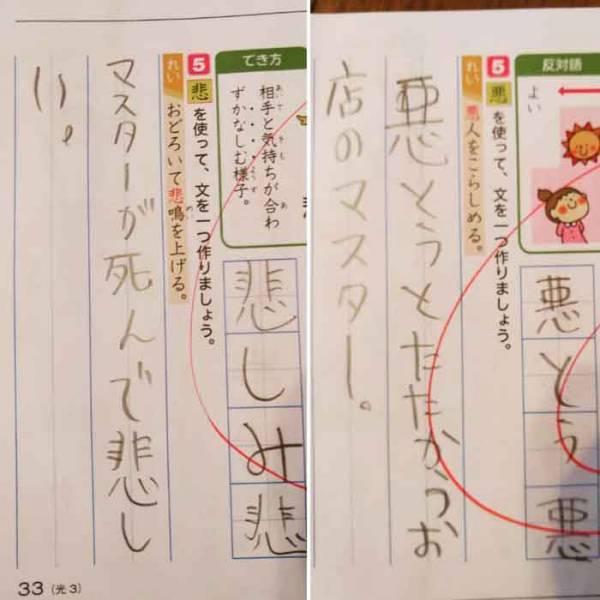 反対語
よい
悪とう悪
5 悪を使って、文を一つ作りましょう。
れい 悪人をこらしめる。
悪とうとたたかうお
店のマスター。
でき方
相手と気持ちが合わ
ずかなしむ様子。
悲しみ悲
5 悲を使って、文を一つ作りましょう。
れい おどろいて悲鳴を上げる。
マスターが死んで悲し
い。
33(光3)